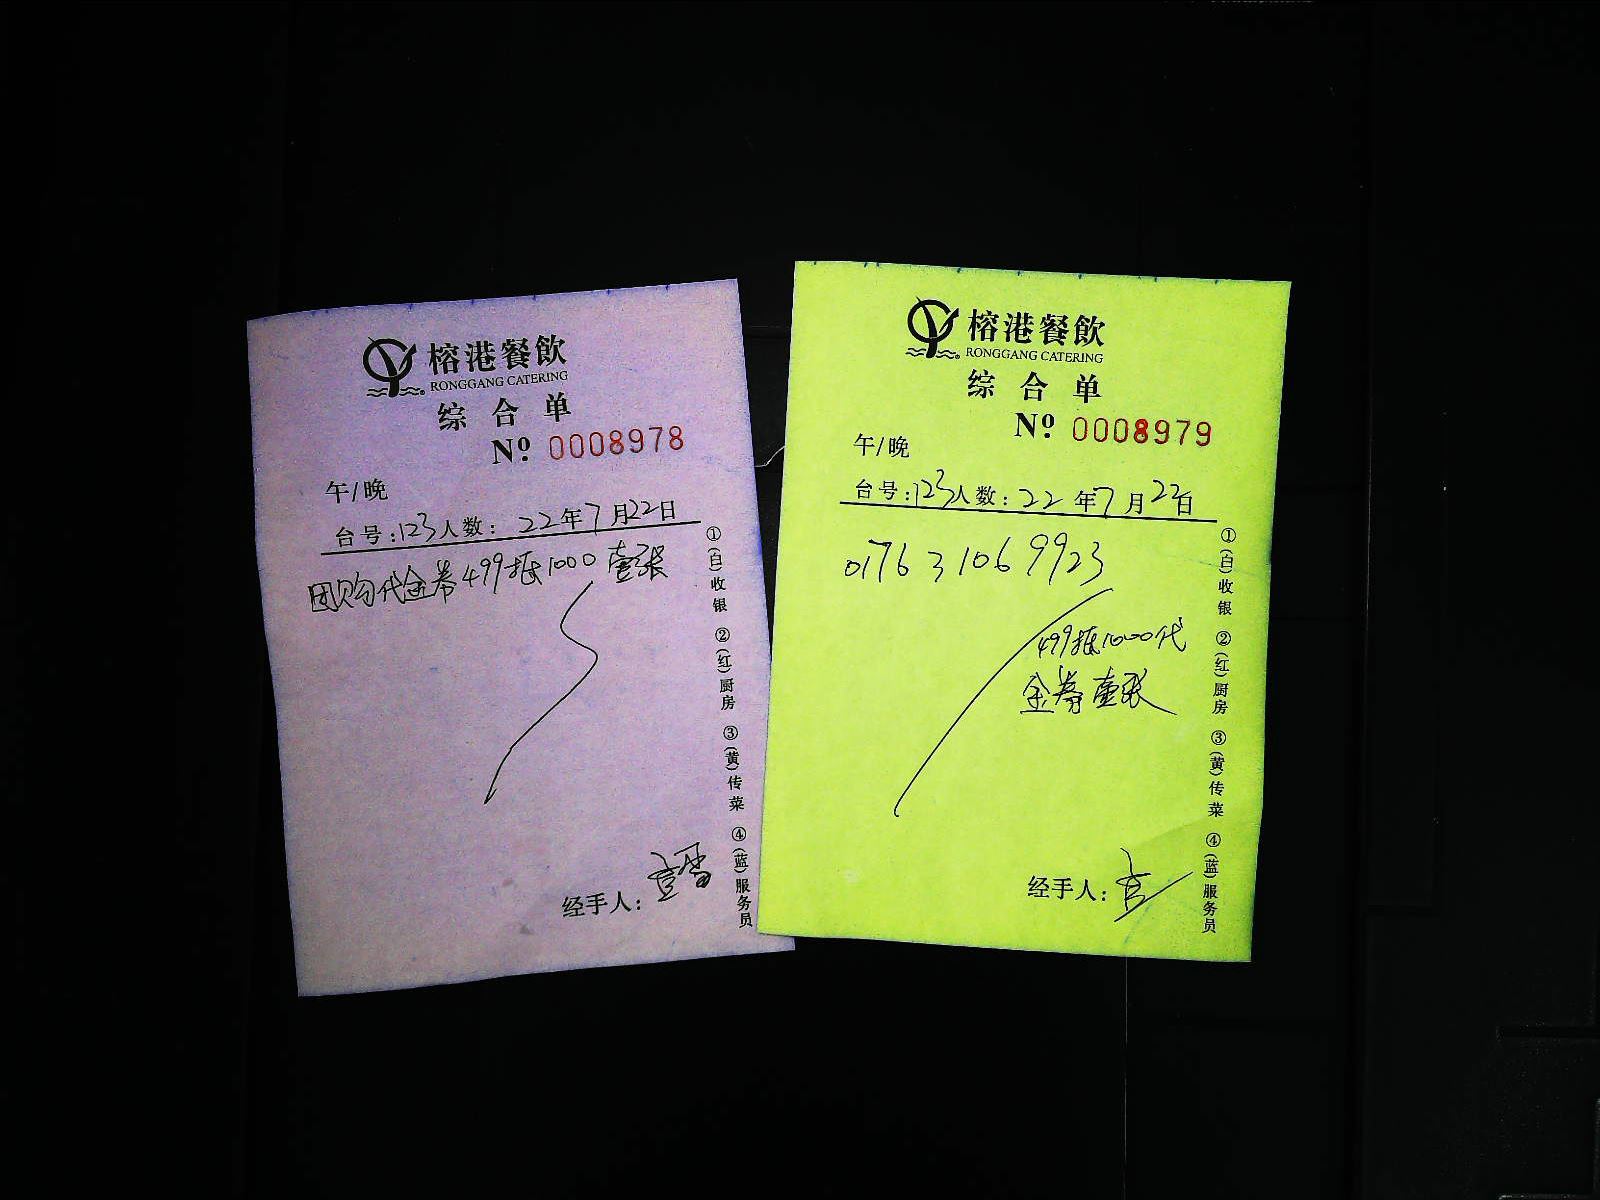 榕港餐飲
RONGGANG CATERING
综合单
Nº 0008978
午/晚
台号:123人数: 22年7月22日
团购代金券499抵1000壹张
经手人:
①(白)收银 ②(红)厨房 ③(黄)传菜 ④(蓝)服务员
榕港餐飲
RONGGANG CATERING
综合单
Nº 0008979
午/晚
台号:123人数: 22年7月22日
017631069923
499抵1000代
金券壹张
经手人:
①(白)收银 ②(红)厨房 ③(黄)传菜 ④(蓝)服务员